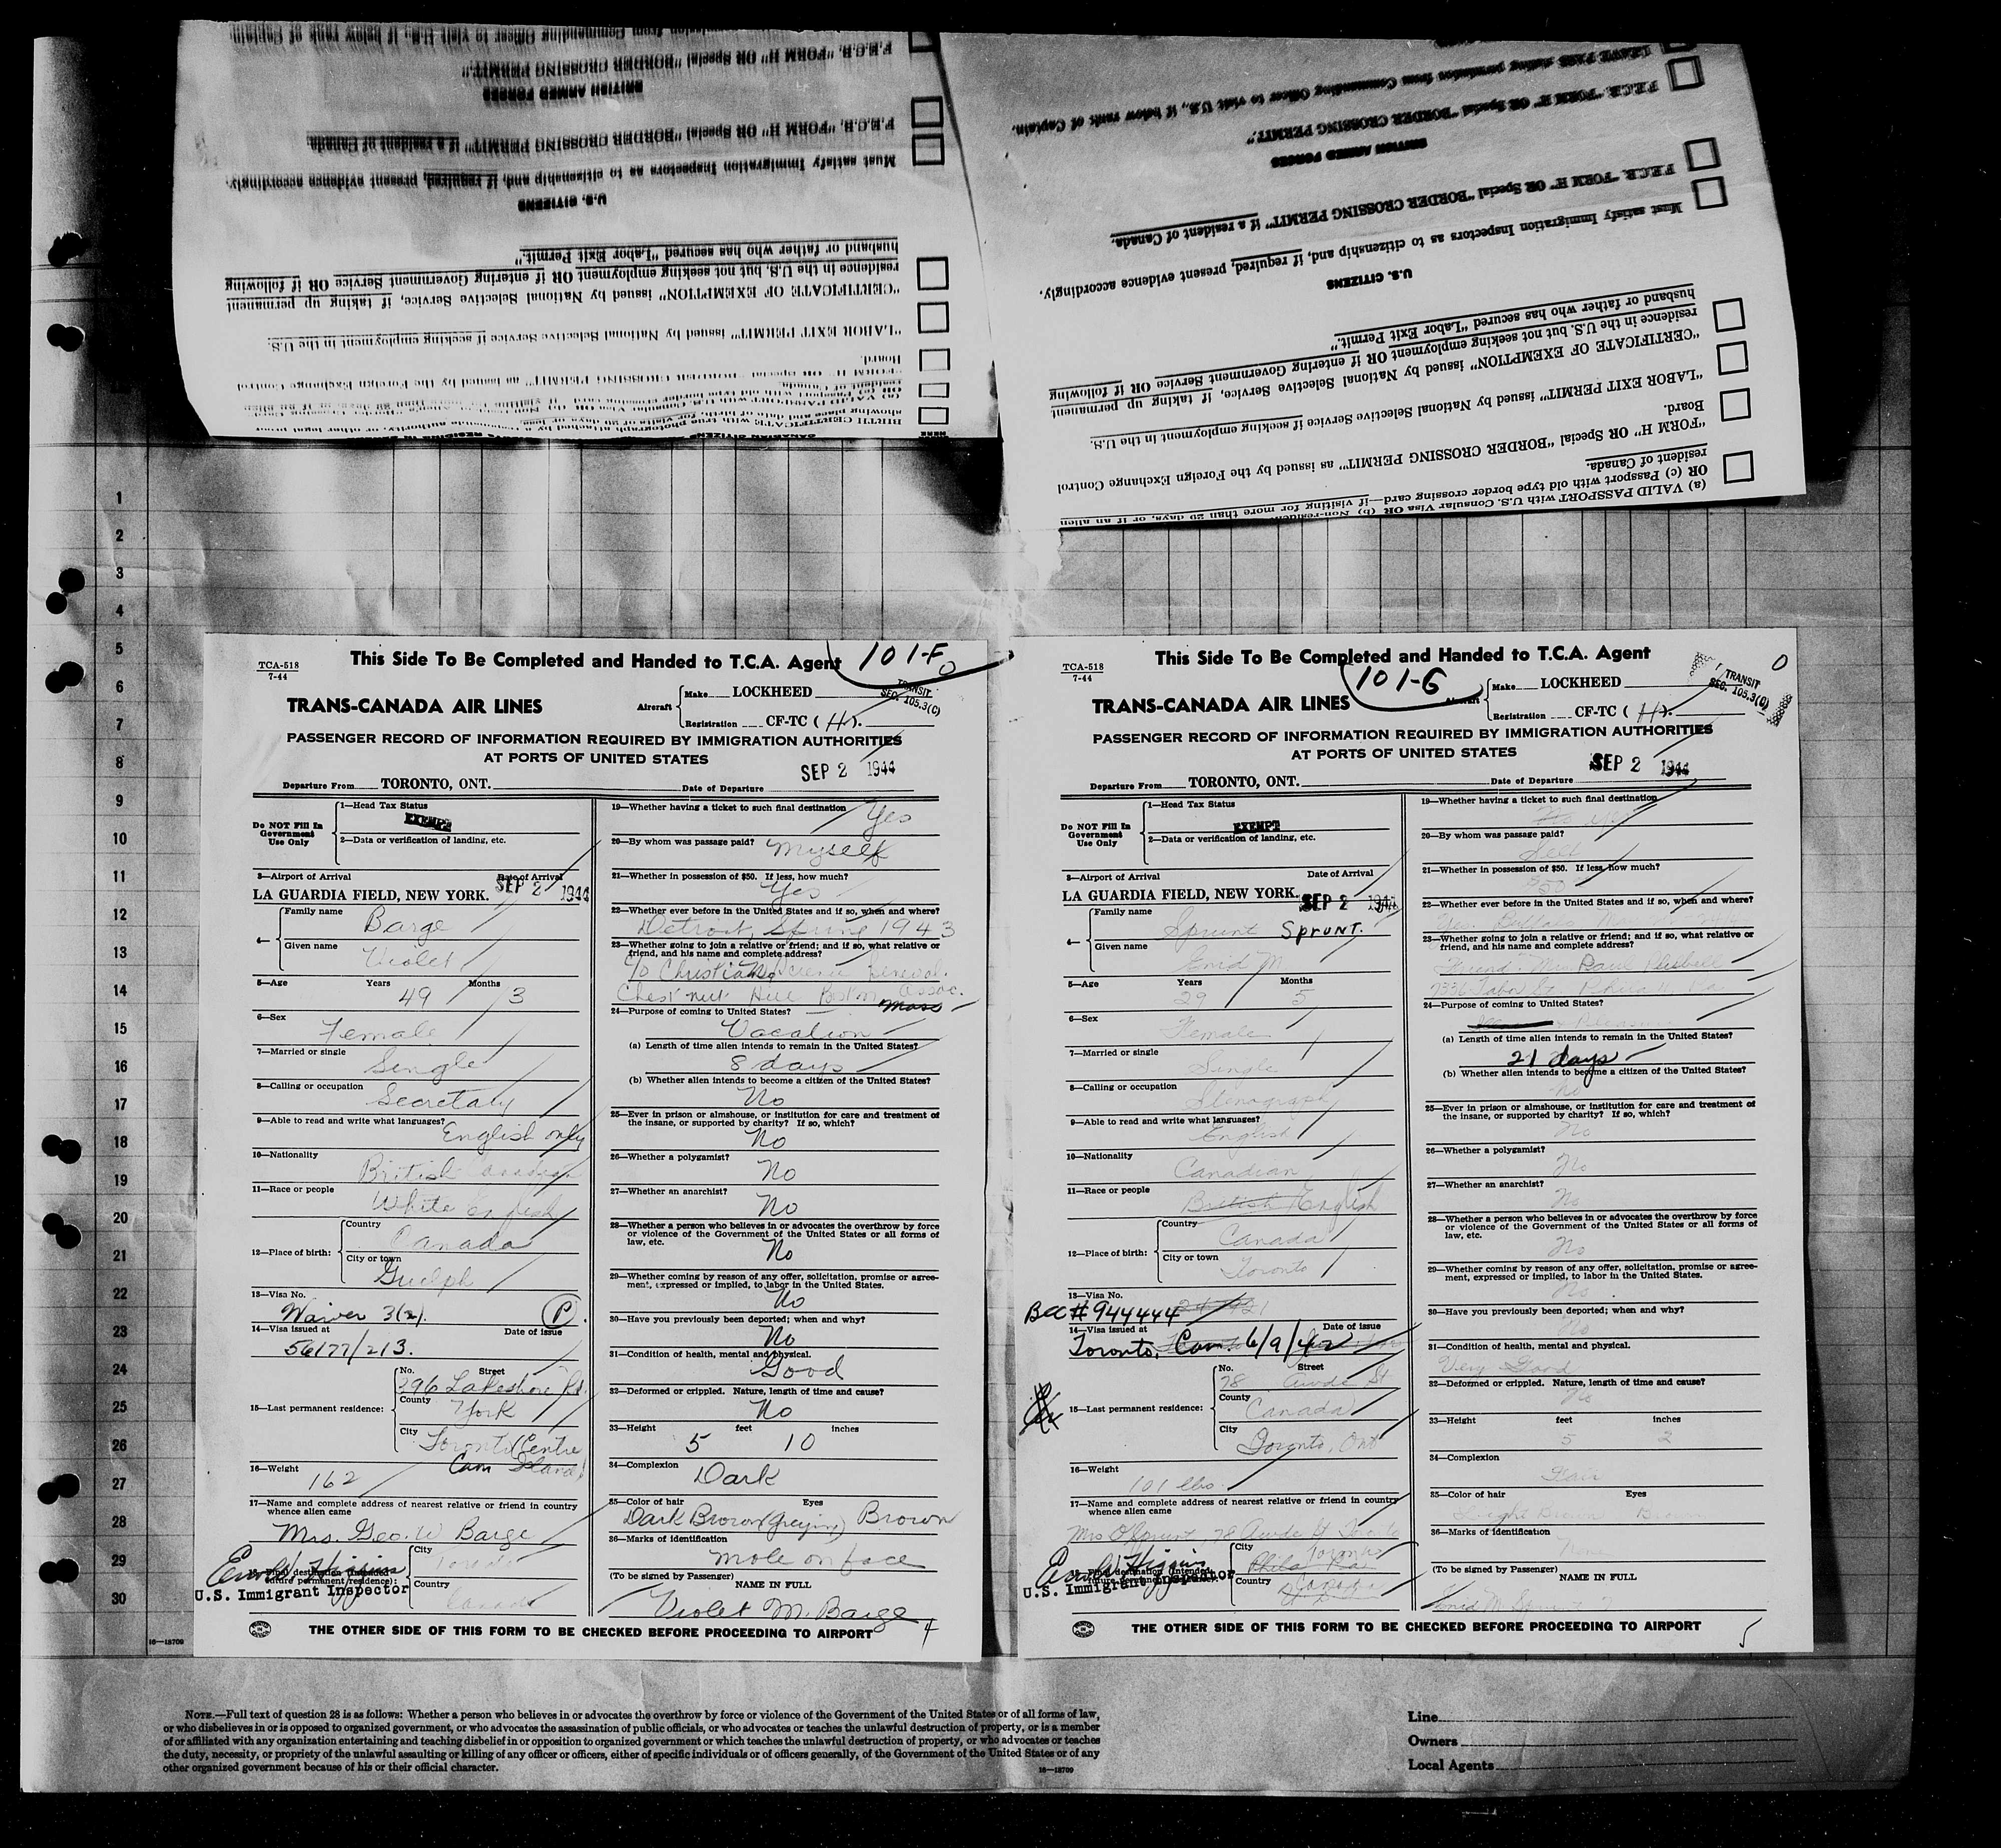 mission from Commanding Officer to visit U.S., if below rank of Captain.
F.E.C.B. "FORM H" OR Special "BORDER CROSSING PERMIT".
BRITISH ARMED FORCES
F.E.C.B. "FORM H" OR Special "BORDER CROSSING PERMIT" if a resident of Canada.
Must satisfy Immigration Inspectors as to citizenship and, if required, present evidence accordingly.
U.S. CITIZENS
husband or father who has secured "Labor Exit Permit."
residence in the U.S. but not seeking employment OR if entering Government Service OR if following
"CERTIFICATE OF EXEMPTION" issued by National Selective Service, if taking up permanent
"LABOR EXIT PERMIT" issued by National Selective Service if seeking employment in the U.S.
Board.
"FORM H" OR Special "BORDER CROSSING PERMIT" as issued by the Foreign Exchange Control
LEAVE PASS stating permission from Commanding Officer to visit U.S., if below rank of Captain.
F.E.C.B. "FORM H" OR Special "BORDER CROSSING PERMIT."
BRITISH ARMED FORCES
F.E.C.B. "FORM H" OR Special "BORDER CROSSING PERMIT" if a resident of Canada.
Must satisfy Immigration Inspectors as to citizenship and, if required, present evidence accordingly.
U.S. CITIZENS
husband or father who has secured "Labor Exit Permit."
residence in the U.S. but not seeking employment OR if entering Government Service OR if following
"CERTIFICATE OF EXEMPTION" issued by National Selective Service, if taking up permanent
"LABOR EXIT PERMIT" issued by National Selective Service if seeking employment in the U.S.
Board.
"FORM H" OR Special "BORDER CROSSING PERMIT" as issued by the Foreign Exchange Control
resident of Canada.
OR (c) Passport with old type border crossing card—if visiting for more than 29 days, or if an alien
(a) VALID PASSPORT with U.S. Consular Visa OR (b) Non-resident
1
2
3
4
5
6
7
8
9
10
11
12
13
14
15
16
17
18
19
20
21
22
23
24
25
26
27
28
29
30
TCA-518
7-44
This Side To Be Completed and Handed to T.C.A. Agent
101-F
0
TRANS-CANADA AIR LINES
Aircraft
Make LOCKHEED
Registration CF-TC ( H ).
TRANSIT
SEC. 105.3(C)
PASSENGER RECORD OF INFORMATION REQUIRED BY IMMIGRATION AUTHORITIES
AT PORTS OF UNITED STATES
Departure From TORONTO, ONT. Date of Departure SEP 2 1944
Do NOT Fill In Government Use Only
1—Head Tax Status
EXEMPT
2—Data or verification of landing, etc.
3—Airport of Arrival Date of Arrival
LA GUARDIA FIELD, NEW YORK. SEP 2 1944
4— Family name Barge
Given name Violet
5—Age Years 49 Months 3
6—Sex Female
7—Married or single Single
8—Calling or occupation Secretary
9—Able to read and write what languages? English only
10—Nationality British Canadian
11—Race or people White English
12—Place of birth: Country Canada
City or town Guelph
13—Visa No.
Waiver 3(2). P.
14—Visa issued at Date of issue
56177/213.
15—Last permanent residence: No. Street
296 Lakeshore Rd.
County York
City Toronto (Centre
Can Island)
16—Weight 162
17—Name and complete address of nearest relative or friend in country
whence alien came
Mrs. Geo. W Barge
City Toronto
Final destination (intended
future permanent residence):
Country Canada
U.S. Immigrant Inspector
19—Whether having a ticket to such final destination Yes
20—By whom was passage paid? Myself
21—Whether in possession of $50. If less, how much?
Yes
22—Whether ever before in the United States and if so, when and where?
Detroit, Spring 1943
23—Whether going to join a relative or friend; and if so, what relative or
friend, and his name and complete address?
c/o Christian Science Benevol.
Chestnut Hill Boston Assoc.
Mass
24—Purpose of coming to United States?
Vacation
(a) Length of time alien intends to remain in the United States?
8 days
(b) Whether alien intends to become a citizen of the United States?
No
25—Ever in prison or almshouse, or institution for care and treatment of
the insane, or supported by charity? If so, which?
No
26—Whether a polygamist? No
27—Whether an anarchist? No
28—Whether a person who believes in or advocates the overthrow by force
or violence of the Government of the United States or all forms of
law, etc.
No
29—Whether coming by reason of any offer, solicitation, promise or agree-
ment, expressed or implied, to labor in the United States.
No
30—Have you previously been deported; when and why?
No
31—Condition of health, mental and physical.
Good
32—Deformed or crippled. Nature, length of time and cause?
No
33—Height 5 feet 10 inches
34—Complexion Dark
35—Color of hair Eyes
Dark Brown (Greying) Brown
36—Marks of identification
mole on face
(To be signed by Passenger)
NAME IN FULL
Violet M. Barge
THE OTHER SIDE OF THIS FORM TO BE CHECKED BEFORE PROCEEDING TO AIRPORT
4
TCA-518
7-44
This Side To Be Completed and Handed to T.C.A. Agent
101-G
0
TRANS-CANADA AIR LINES
Aircraft
Make LOCKHEED
Registration CF-TC ( H ).
TRANSIT
SEC. 105.3(C)
PASSENGER RECORD OF INFORMATION REQUIRED BY IMMIGRATION AUTHORITIES
AT PORTS OF UNITED STATES
Departure From TORONTO, ONT. Date of Departure SEP 2 1944
Do NOT Fill In Government Use Only
1—Head Tax Status
EXEMPT
2—Data or verification of landing, etc.
3—Airport of Arrival Date of Arrival
LA GUARDIA FIELD, NEW YORK. SEP 2 1944
4— Family name Sprunt SPRUNT.
Given name Enid M
5—Age Years 29 Months 5
6—Sex Female
7—Married or single Single
8—Calling or occupation Stenograph
9—Able to read and write what languages?
English
10—Nationality Canadian
11—Race or people British English
12—Place of birth: Country Canada
City or town Toronto
13—Visa No.
BCC # 944444
14—Visa issued at Date of issue
Toronto, Can. 6/9/42
15—Last permanent residence: No. Street
78 Awde St
County Canada
City Toronto, Ont
16—Weight 101 lbs.
17—Name and complete address of nearest relative or friend in country
whence alien came
Mrs O Sprunt 78 Awde St Toronto
City Toronto
Phila Pa
Final destination (intended
Country Canada
U.S. Immigrant Inspector
19—Whether having a ticket to such final destination
20—By whom was passage paid?
Self
21—Whether in possession of $50. If less, how much?
$50
22—Whether ever before in the United States and if so, when and where?
23—Whether going to join a relative or friend; and if so, what relative or
friend, and his name and complete address?
Friend Paul
24—Purpose of coming to United States?
(a) Length of time alien intends to remain in the United States?
21 days
(b) Whether alien intends to become a citizen of the United States?
No
25—Ever in prison or almshouse, or institution for care and treatment of
the insane, or supported by charity? If so, which?
No
26—Whether a polygamist? No
27—Whether an anarchist? No
28—Whether a person who believes in or advocates the overthrow by force
or violence of the Government of the United States or all forms of
law, etc.
No
29—Whether coming by reason of any offer, solicitation, promise or agree-
ment, expressed or implied, to labor in the United States.
No
30—Have you previously been deported; when and why?
No
31—Condition of health, mental and physical.
Very Good
32—Deformed or crippled. Nature, length of time and cause?
No
33—Height 5 feet 2 inches
34—Complexion Fair
35—Color of hair Eyes
Light Brown Brown
36—Marks of identification
None
(To be signed by Passenger)
NAME IN FULL
Enid M Sprunt
THE OTHER SIDE OF THIS FORM TO BE CHECKED BEFORE PROCEEDING TO AIRPORT
5
16—18709
NOTE.—Full text of question 28 is as follows: Whether a person who believes in or advocates the overthrow by force or violence of the Government of the United States or of all forms of law,
or who disbelieves in or is opposed to organized government, or who advocates the assassination of public officials, or who advocates or teaches the unlawful destruction of property, or is a member
of or affiliated with any organization entertaining and teaching disbelief in or opposition to organized government or which teaches the unlawful destruction of property, or who advocates or teaches
the duty, necessity, or propriety of the unlawful assaulting or killing of any officer or officers, either of specific individuals or of officers generally, of the Government of the United States or of any
other organized government because of his or their official character.
16—18709
Line
Owners
Local Agents